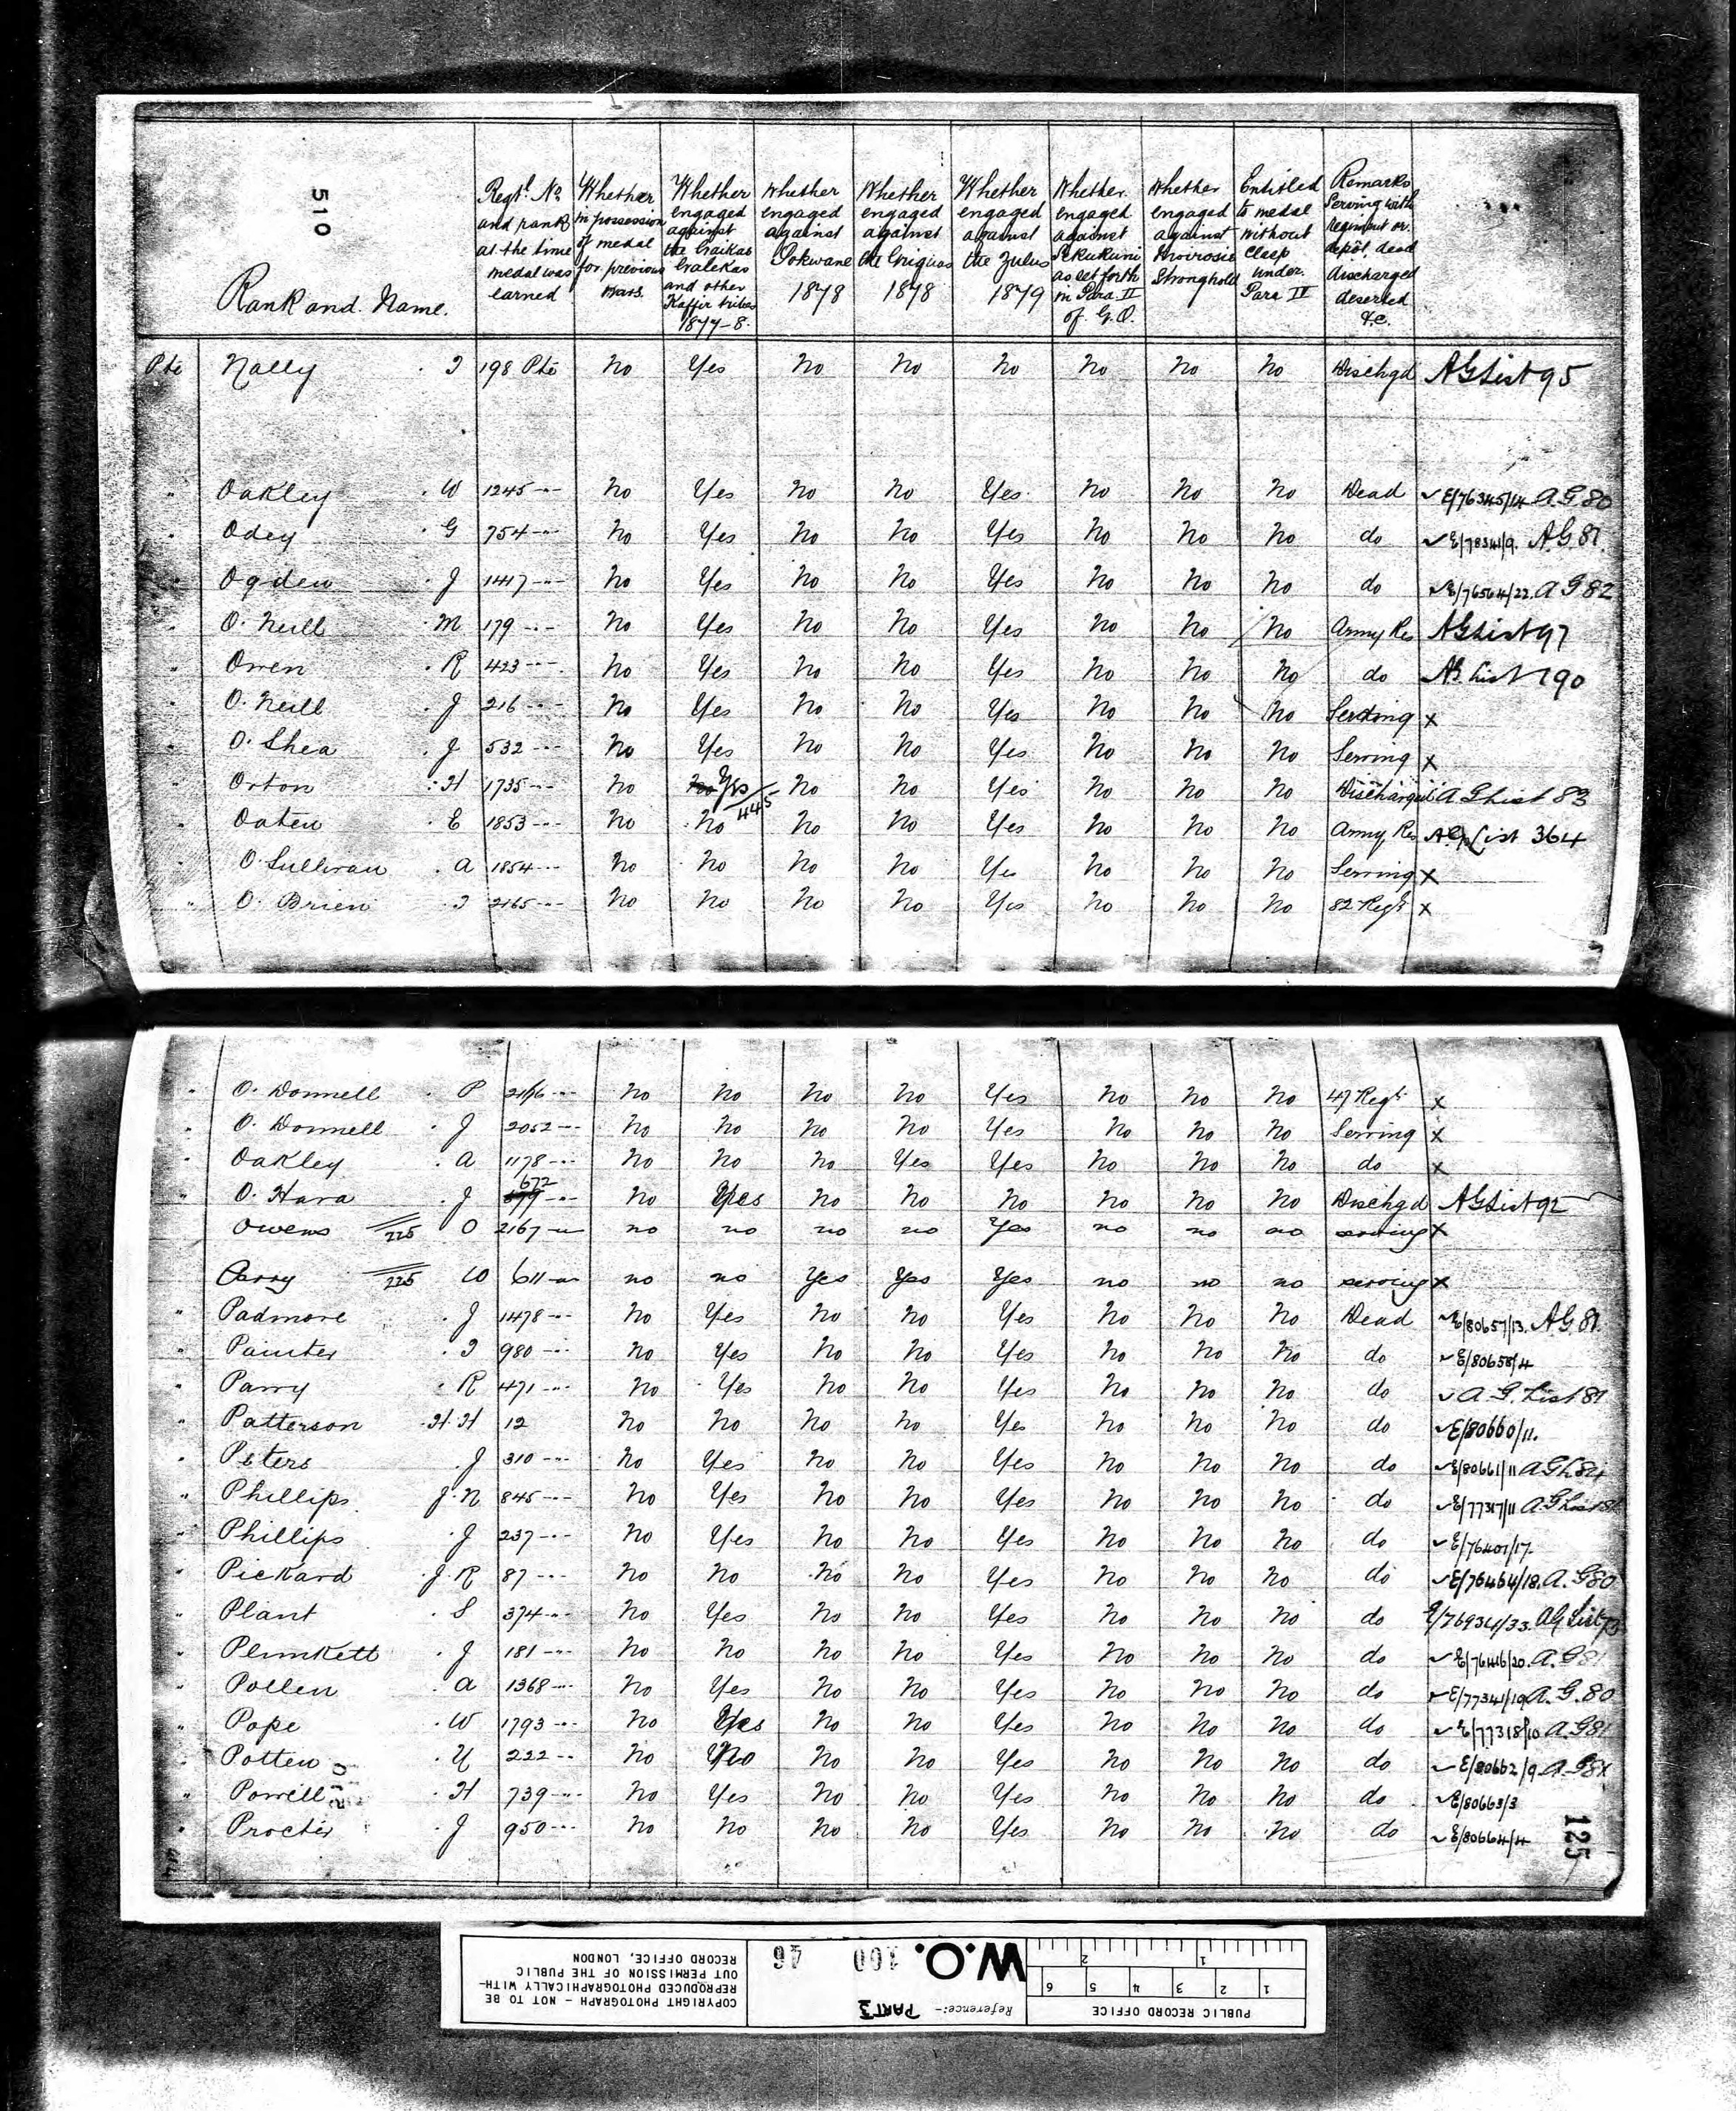 510
Rank and Name.
Regtl. No. and rank at the time medal was earned
Whether in possession of medal for previous wars.
Whether engaged against the Gaikas Galekas and other Kaffir tribes 1877-8.
Whether engaged against Pokwane 1878
Whether engaged against the Griquas 1878
Whether engaged against the Zulus 1879
Whether engaged against Sekukuni as set forth in Para II of G.O.
Whether engaged against Moirosi's Stronghold
Entitled to medal without Clasp under Para II
Remarks Serving with Regiment or depôt, dead discharged deserted &c.
Pte Nally . J 198 Pte No Yes No No No No No No Dischgd AG List 95
" Oakley . W 1245 --- No Yes No No Yes No No No Dead E/76345/14 A.G 80
" Odey . G 754 --- No Yes No No Yes No No No do A.G 81.
" Ogden . J 1417 --- No Yes No No Yes No No No do E/76564/22. A G 82
" O. Neill . M 179 --- No Yes No No Yes No No No Army Res AG List 97
" Owen . R 423 --- No Yes No No Yes No No No do AG List 190
" O. Neill . J 216 --- No Yes No No Yes No No No Serving x
" O. Shea . J 532 --- No Yes No No Yes No No No Serving x
" Orton . H 1735 --- No No Yes 445 No No Yes No No No Discharged A G List 83
" Oaten . E 1853 --- No No No No Yes No No No Army Res A.G List 364
" O. Sullivan . A 1854 --- No No No No Yes No No No Serving x
" O. Brien . J 2165 --- No No No No Yes No No No 82 Regt x
" O. Donnell . P --- No No No No Yes No No No 47 Regt x
" O. Donnell . J 2052 --- No No No No Yes No No No Serving x
" Oakley . A 1178 --- No No No Yes Yes No No No do x
" O. Hara . J 672 --- No Yes No No No No No No Dischgd AG List 92
Owens 225 O 2167 --- no no no no Yes no no no serving x
Parry 225 W 611 --- no no Yes Yes Yes no no no serving x
" Padmore . J 1478 --- No Yes No No Yes No No No Dead E/80657/13. A G 81.
" Painter . J 980 --- No Yes No No Yes No No No do E/80658/4
" Parry . R 471 --- No Yes No No Yes No No No do A. G. List 81
" Patterson . H. H 12 No No No No Yes No No No do E/80660/11.
" Peters . J 310 --- No Yes No No Yes No No No do E/80661/11 A G L 84
" Phillips J. N 845 --- No Yes No No Yes No No No do E/77317/11 A G List 81
" Phillips . J 237 --- No Yes No No Yes No No No do E/76401/17.
" Pickard . J. R 87 --- No No No No Yes No No No do E/76464/18. A. G 80
" Plant . S 374 --- No Yes No No Yes No No No do E/76934/33. AG List
" Plunkett . J 181 --- No No No No Yes No No No do E/76446/20. A. G 81
" Pollen . A 1368 --- No Yes No No Yes No No No do E/77341/19 A. G. 80
" Pope . W 1793 --- No Yes No No Yes No No No do E/77318/10 A. G 81
" Potten . U 222 --- No No No No Yes No No No do E/80662/9. A. G
" Powell . H 739 --- No Yes No No Yes No No No do E/80663/3
" Procter . J 950 --- No No No No Yes No No No do E/80664/4
125
PUBLIC RECORD OFFICE
1 2 3 4 5 6
1 2
Reference:- PART 3
W.O. 100 46
COPYRIGHT PHOTOGRAPH - NOT TO BE
REPRODUCED PHOTOGRAPHICALLY WITH-
OUT PERMISSION OF THE PUBLIC
RECORD OFFICE, LONDON